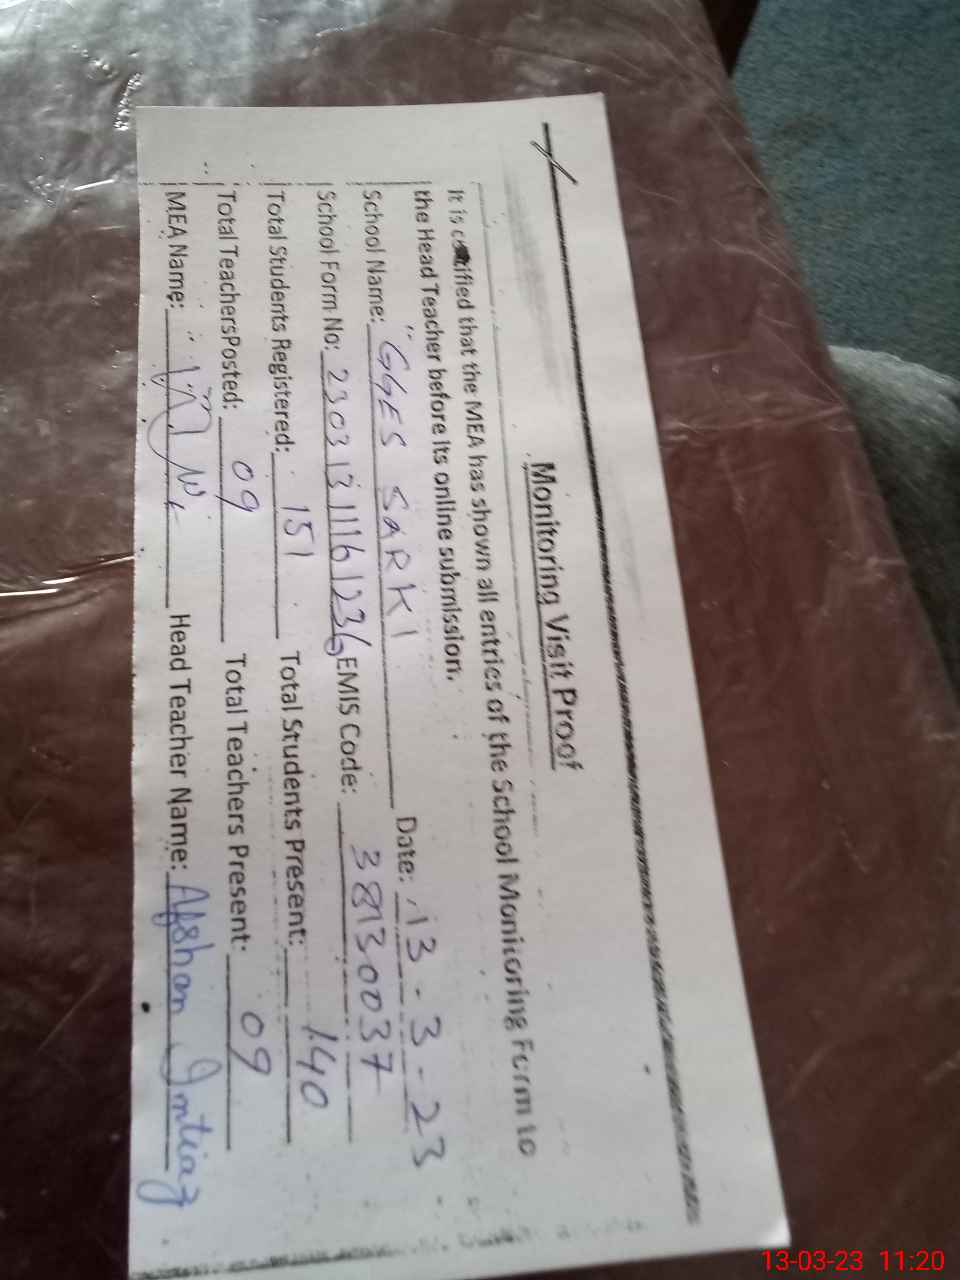 Monitoring Visit Proof
It is certified that the MEA has shown all entries of the School Monitoring Form to
the Head Teacher before its online submission.
School Name: GGES SARKI Date: 13-3-23
School Form No: 23031311161236 EMIS Code: 38130037
Total Students Registered: 151 Total Students Present: 140
Total TeachersPosted: 09 Total Teachers Present: 09
MEA Name: Head Teacher Name: Afshan Imtiaz
13-03-23 11:20